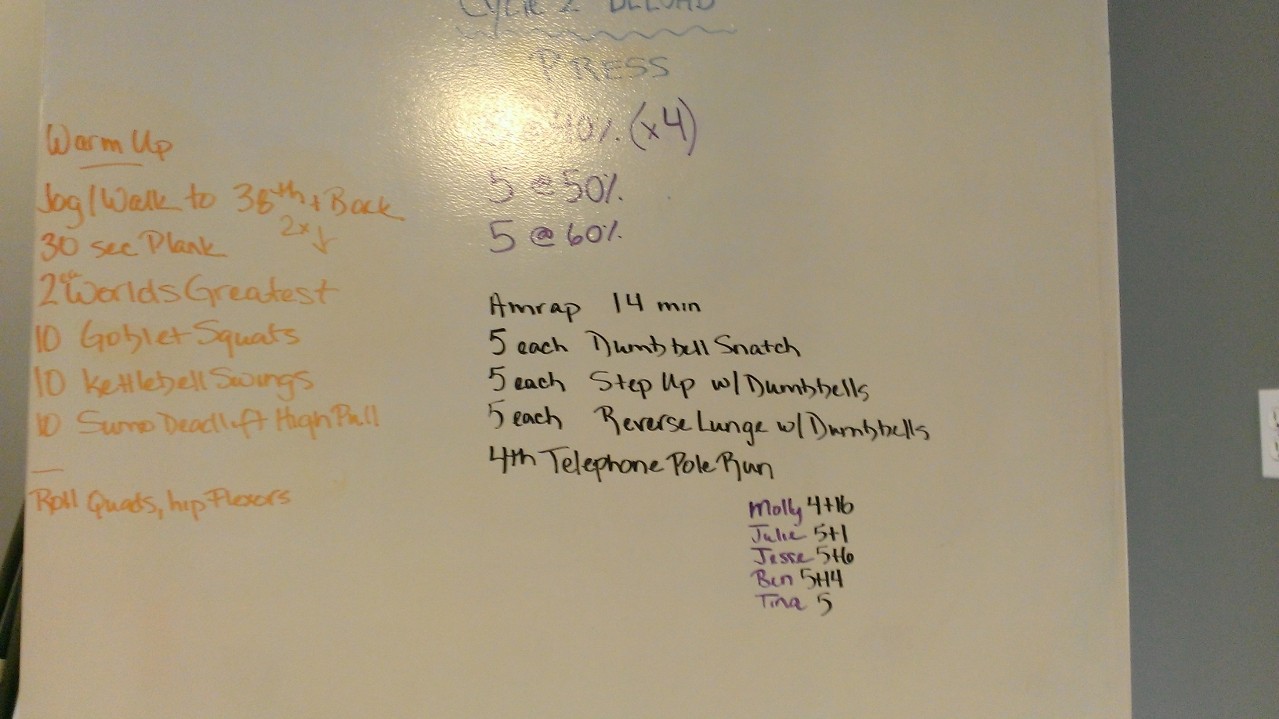 Cycle 2 DELOAD
PRESS
@ 40% (x4)
5 @ 50%
5 @ 60%
Warm Up
Jog/Walk to 38th + Back
30 sec Plank 2x ↓
2 ea Worlds Greatest
10 Goblet Squats
10 Kettlebell Swings
10 Sumo Deadlift High Pull
—
Roll Quads, hip Flexors
Amrap 14 min
5 each Dumbbell Snatch
5 each Step Up w/ Dumbbells
5 each Reverse Lunge w/ Dumbbells
4th Telephone Pole Run
Molly 4+16
Julie 5+1
Jesse 5+6
Ben 5+14
Tina 5